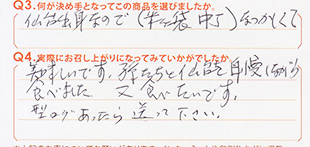 Q3.何が決め手となってこの商品を選びましたか。
仙台出身なので(牛タン袋 中丁)なつかしくて
Q4.実際にお召し上がりになってみていかがでしたか。
美味しいです。孫たちと仙台を自慢しながら
食べました 又食べたいです。
型ログあったら送って下さい。